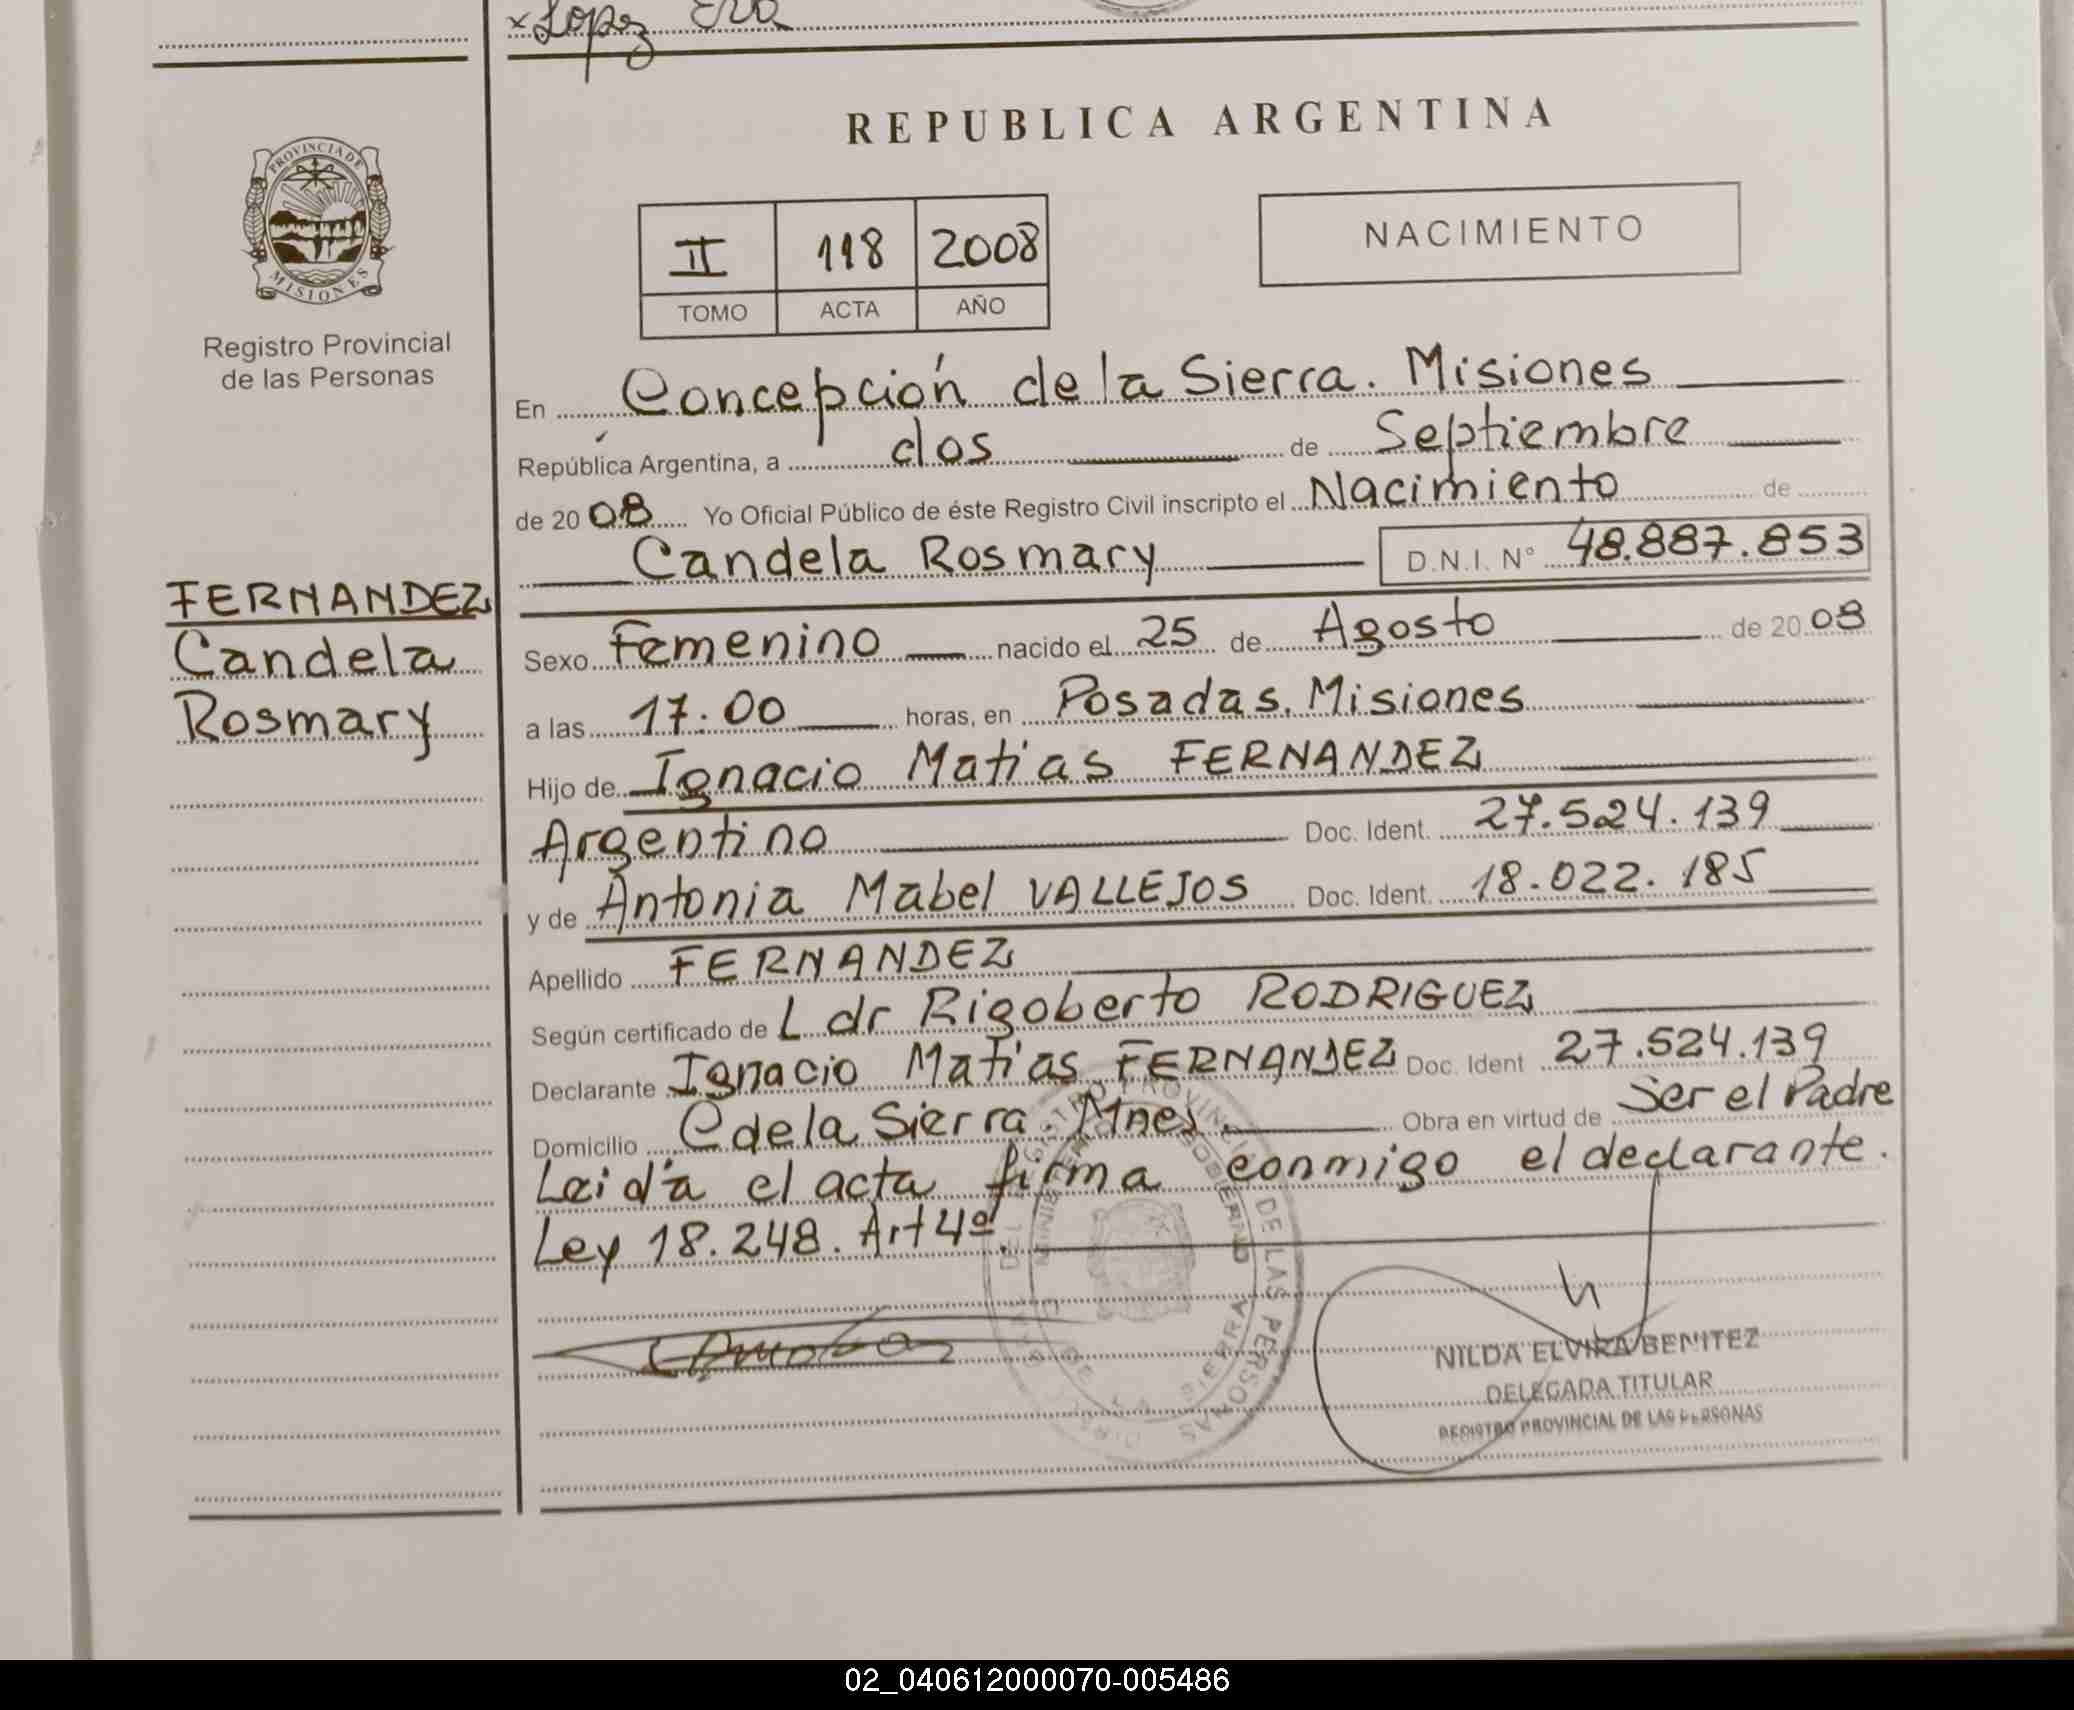 x Lopez
REPUBLICA ARGENTINA
PROVINCIA DE
MISIONES
Registro Provincial
de las Personas
II 118 2008
TOMO ACTA AÑO
NACIMIENTO
En Concepción de la Sierra. Misiones
República Argentina, a dos de Septiembre
de 20 08 Yo Oficial Público de éste Registro Civil inscripto el Nacimiento de
Candela Rosmary D.N.I. Nº 48.887.853
FERNANDEZ
Candela
Rosmary
Sexo Femenino nacido el 25 de Agosto de 20 08
a las 17.00 horas, en Posadas. Misiones
Hijo de Ignacio Matías FERNANDEZ
Argentino Doc. Ident. 27.524.139
y de Antonia Mabel VALLEJOS Doc. Ident. 18.022.185
Apellido FERNANDEZ
Según certificado de L dr Rigoberto RODRIGUEZ
Declarante Ignacio Matías FERNANDEZ Doc. Ident 27.524.139
Domicilio C de la Sierra. Mnes Obra en virtud de Ser el Padre
Leida el acta firma conmigo el declarante.
Ley 18.248. Art 4º.
NILDA ELVIRA BENITEZ
DELEGADA TITULAR
REGISTRO PROVINCIAL DE LAS PERSONAS
02_040612000070-005486